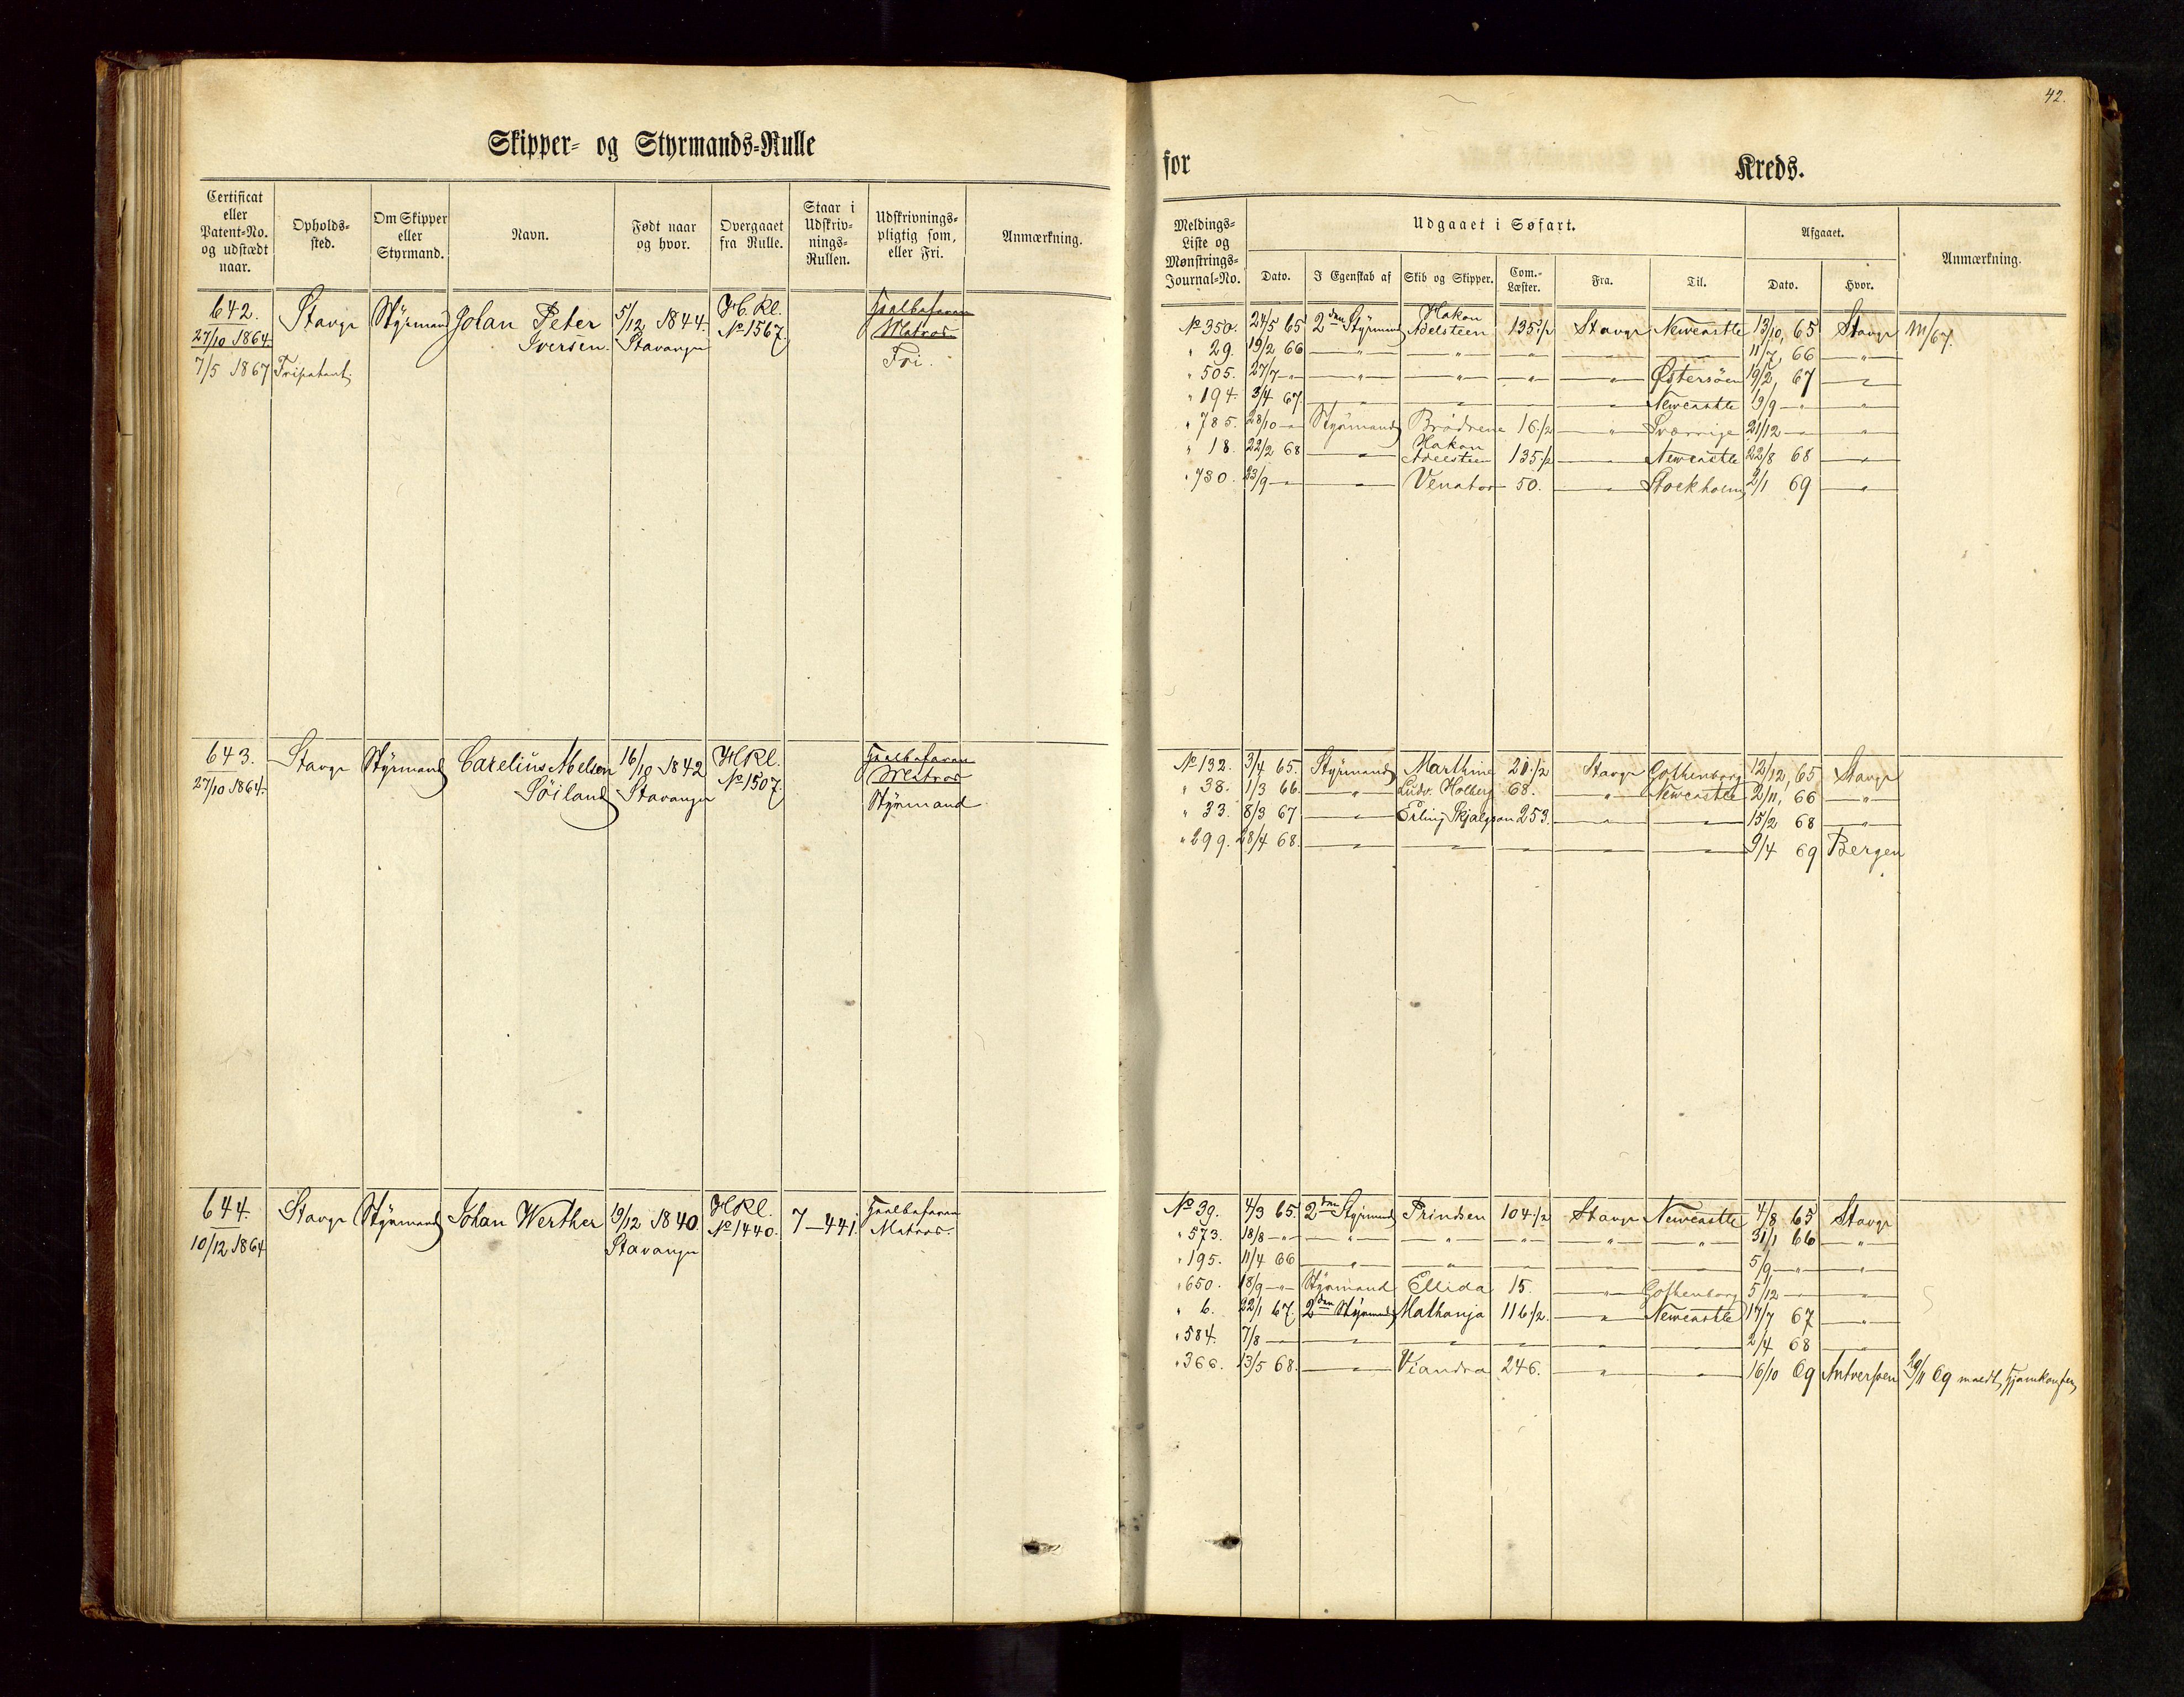 42.
Skipper- og Styrmands-Rulle
for Kreds.
Certificat eller Patent-No. og udstædt naar.
Opholds-sted.
Om Skipper eller Styrmand.
Navn.
Født naar og hvor.
Overgaaet fra Rulle.
Staar i Udskriv-nings-Rullen.
Udskrivnings-pligtig som, eller Fri.
Anmærkning.
Meldings-Liste og Mønstrings-Journal-No.
Udgaaet i Søfart.
Dato.
I Egenskab af
Skib og Skipper.
Com.-Læster.
Fra.
Til.
Afgaaet.
Dato.
Hvor.
Anmærkning.
642. Stavgr Styrmand Johan Peter 5/12 1844. H.Kl.
27/10 1864 Iversen. Stavanger No 1567. Matros
7/5 1867 Fripatent. Fri.
No 350. 24/5 65 2den Styrmand Hakon Adelsteen 135 1/2 Stavgr Newcastle 13/10, 65 Stavgr M/67.
" 29. 19/2 66 — " — — " — — " — 11/7, 66 — " —
" 505. 27/7 — " — " — — " — — " — — " — Østersöen 19/2, 67 — " —
" 194. 3/4 67. — " — — " — — " — — " — Newcastle 19/9 — " — — " —
" 785. 28/10 — " — Styrmand Brödrene 16 1/2 — " — Sverrige 21/12 — " — — " —
" 18. 22/2 68 — " — Hakon Adelsteen 135 1/2 — " — Newcastle 22/8 68 — " —
" 730. 23/9 — " — — " — Venator 50. — " — Stockholm 2/1 69 — " —
643. Stavgr Styrmand Carelius Abelsen 16/10 1842 HKl.
27/10 1864. Söiland Stavanger No 1507. Matros
Styrmand
No 132. 3/4 65. Styrmand Marthine 21 1/2 Stavgr Gothenborg 12/12, 65 Stavgr
" 38. 1/3 66. — " — Ludv. Holberg 68. — " — Newcastle 2/11, 66 — " —
" 33. 8/3 67 — " — Erling Skjalgson 253. — " — — " — 15/2 68 — " —
" 299. 28/4 68. — " — — " — — " — — " — — " — 9/4 69 Bergen
644. Stavgr Styrmand Johan Werther 19/12 1840. HKl. 7—441.
10/12 1864 Stavanger No 1440. Matros.
No 39. 4/3 65. 2den Styrmand Prindsen 104 1/2 Stavgr Newcastle 4/8 65 Stavgr
" 573. 18/8 — " — — " — — " — — " — — " — — " — 31/1 66 — " —
" 195. 11/4 66 — " — — " — — " — — " — — " — 5/9 — " — — " —
" 650. 18/9 — " — Styrmand Ellida 15. — " — Gothenborg 5/12 — " — — " —
" 6. 22/1 67. 2den Styrmand Mathanja 116 1/2. — " — Newcastle 17/7 67 — " —
" 584. 7/8 — " — — " — — " — — " — — " — — " — 2/4 68 — " —
" 366. 13/5 68. — " — Viandra 246. — " — — " — 16/10 69 Antverpen 29/11 69 meldt Hjemkomsten